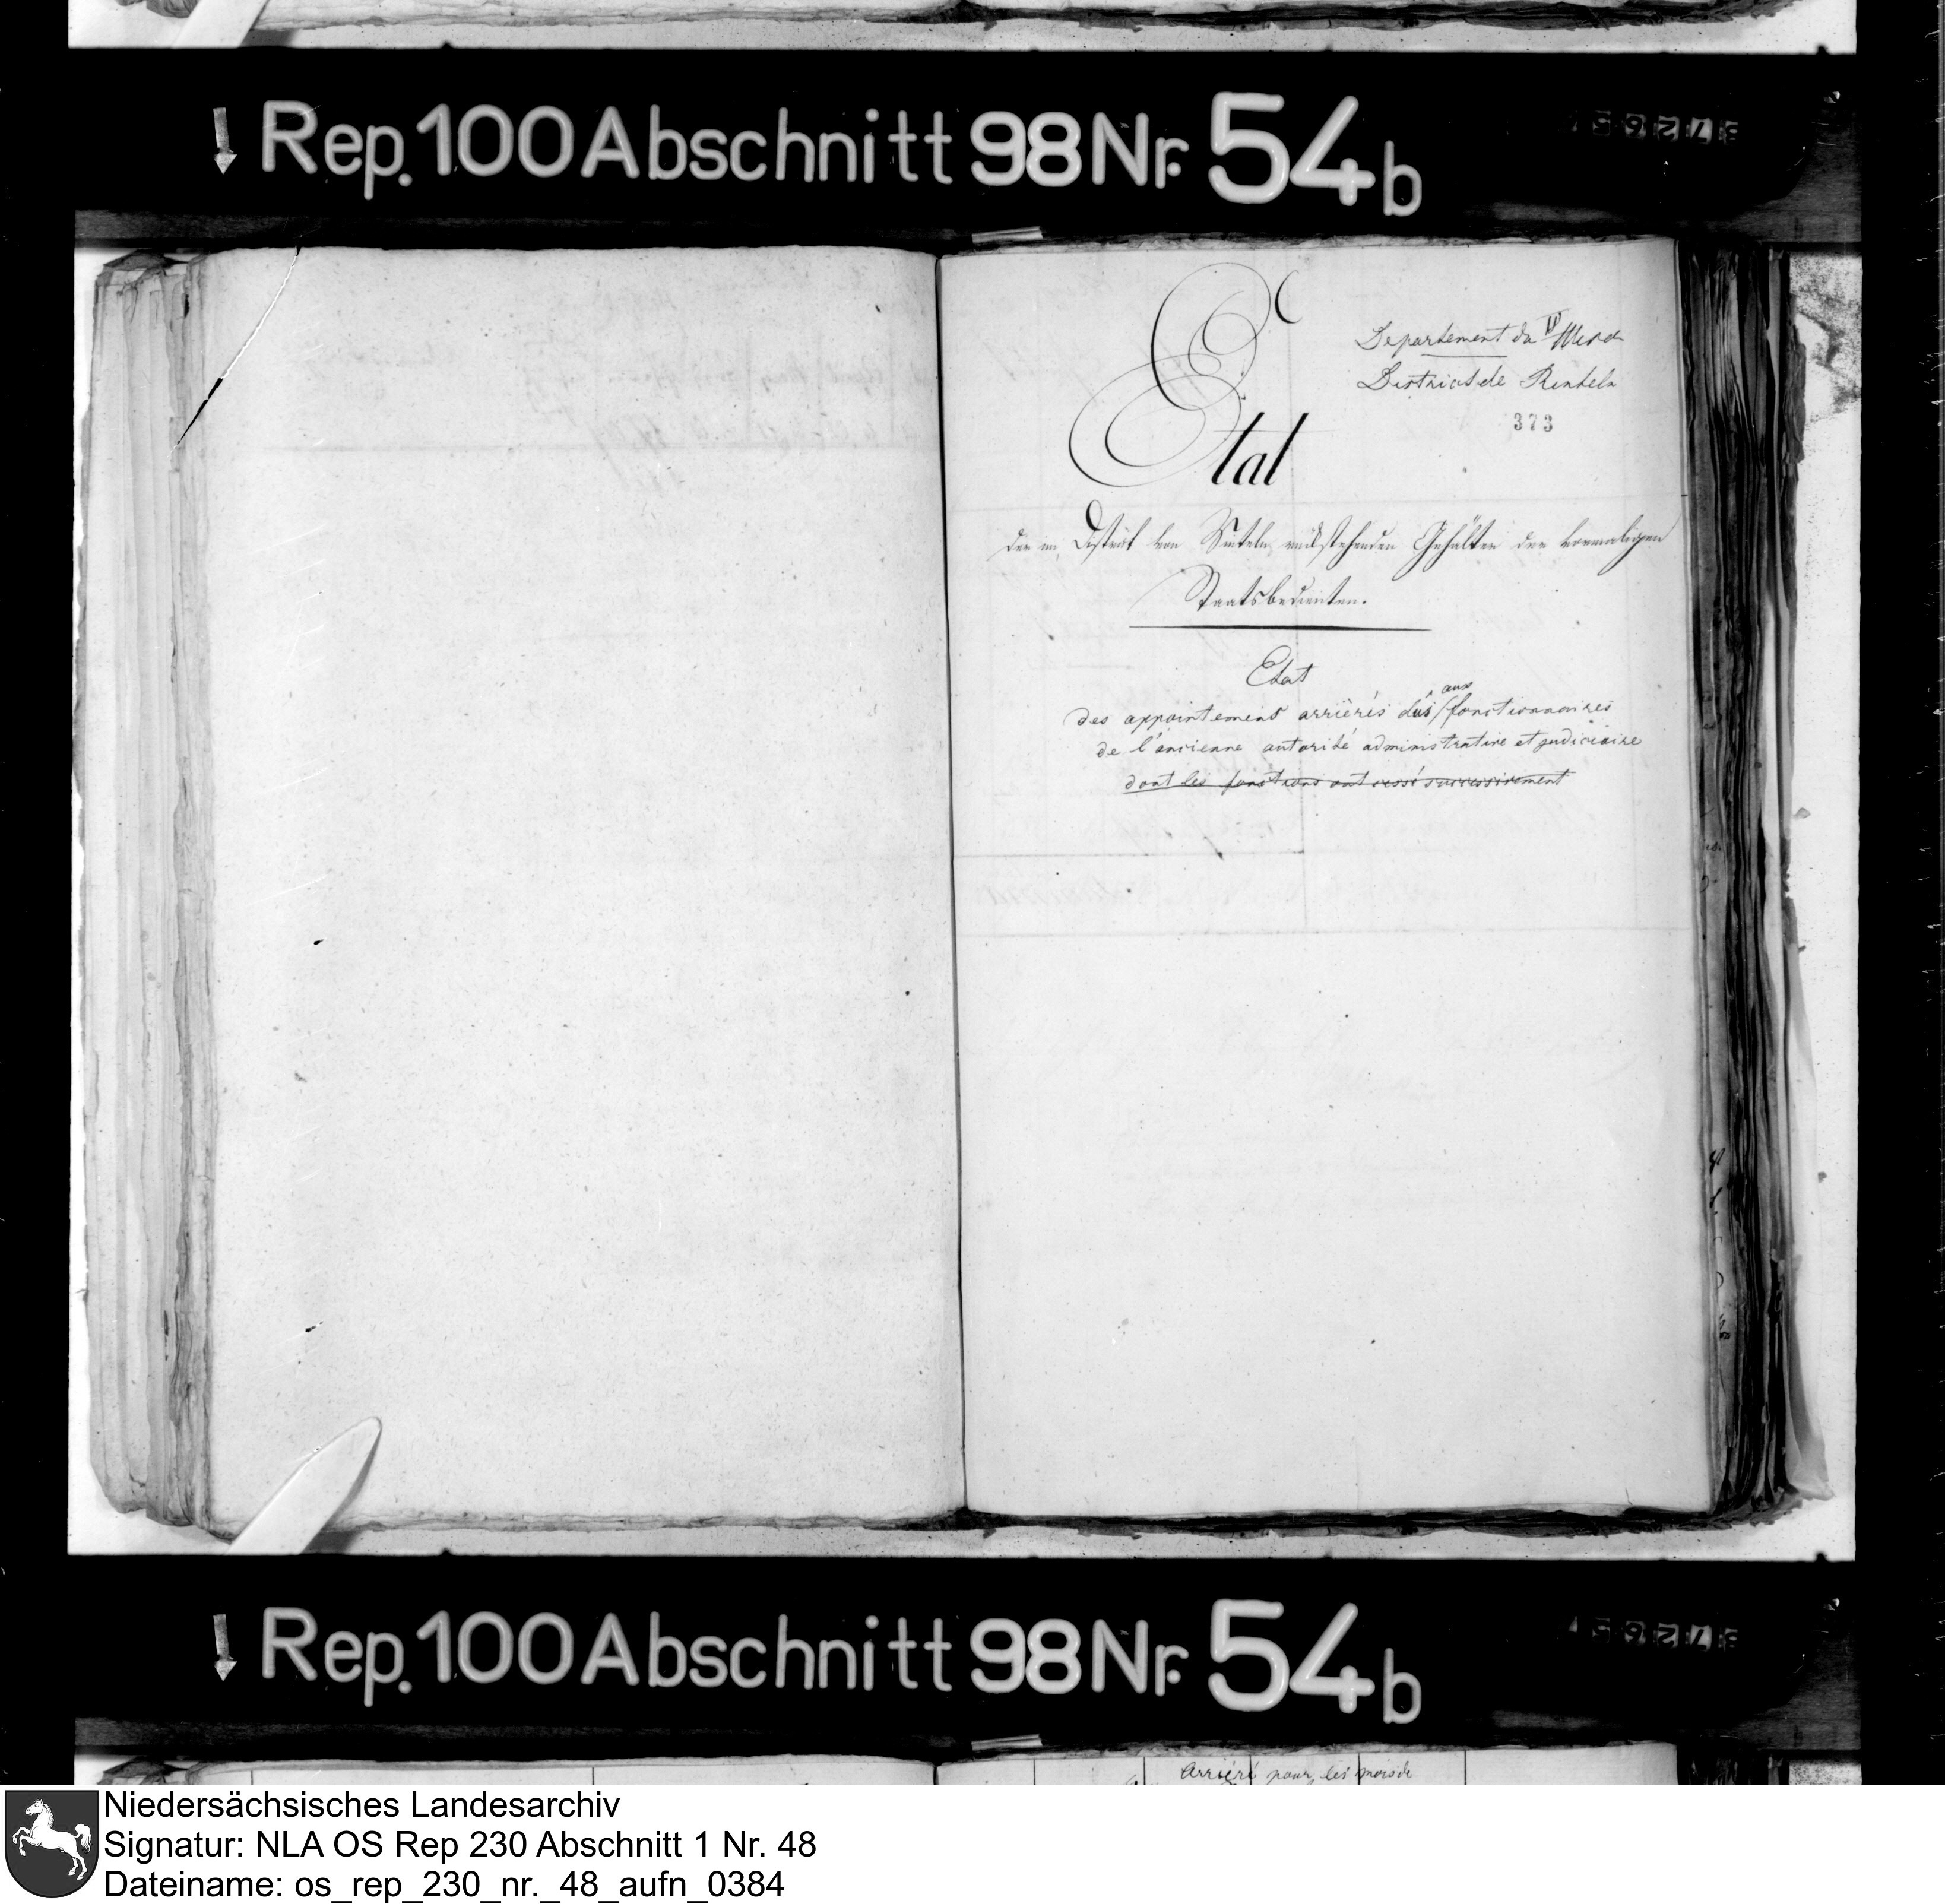 Rep. 100 Abschnitt 98 Nr. 54b
Departement du Weser
District de Rinteln
373
Etat
der im District von Rinteln rückstehenden Gehälter der vormaligen
Staatsbedienten.
Etat
aux
des appointemens arriérés dûs fonctionnaires
de l'ancienne autorité administrative et judiciaire
dont les fonctions ont cessé successivement
Rep. 100 Abschnitt 98 Nr. 54b
Arriéré pour les mois de
Niedersächsisches Landesarchiv
Signatur: NLA OS Rep 230 Abschnitt 1 Nr. 48
Dateiname: os_rep_230_nr._48_aufn_0384